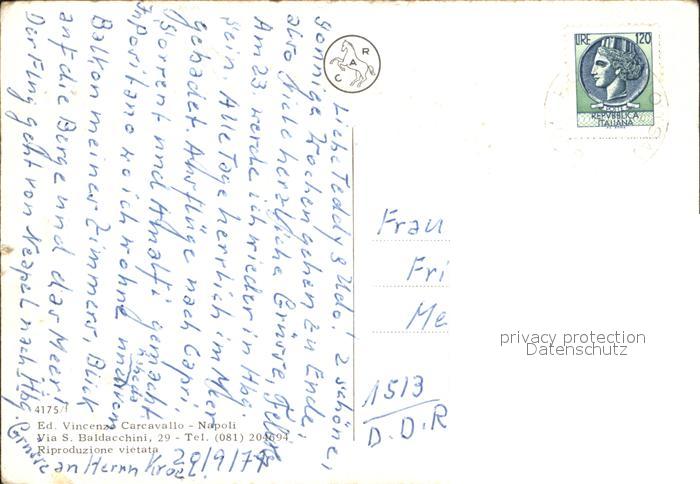 Liebe Teddy & Udo! 2 schöne,
sonnige Wochen gehen zu Ende,
also viele herzliche Grüsse,
Am 23. werde ich wieder in Hbg.
sein. Alle Tage herrlich im Meer
gebadet. Ausflüge nach Capri,
Sorrent und Amalfi gemacht.
In Positano wo ich wohne
Balkon meines Zimmers, Blick
auf die Berge und das Meer!
Der Flug geht von Neapel nach Hbg.
Grüsse an Herrn
CAR
LIRE 120
POSTE
REPVBBLICA
ITALIANA
Frau
Fri
Me
1513
D.D.R
privacy protection
Datenschutz
4175/
Ed. Vincenzo Carcavallo - Napoli
Via S. Baldacchini, 29 - Tel. (081) 204694
Riproduzione vietata